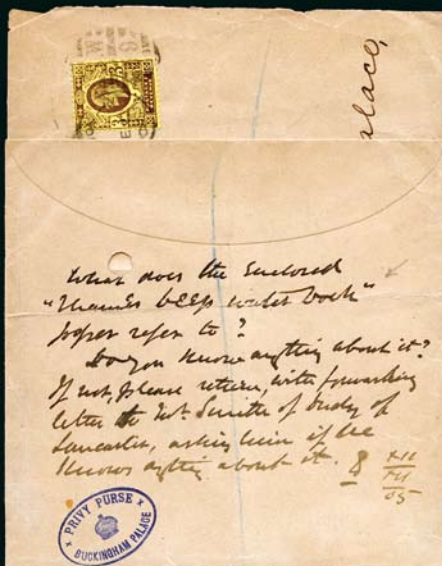 alace,
What does the Enclosed
"Thames DEEP water Dock"
paper refer to?
Do you know anything about it?
If not, please return, with forwarding
letter to Mr. Smith of Duchy of
Lancaster, asking him if he
knows anything about it.
XII
05
* PRIVY PURSE *
BUCKINGHAM PALACE